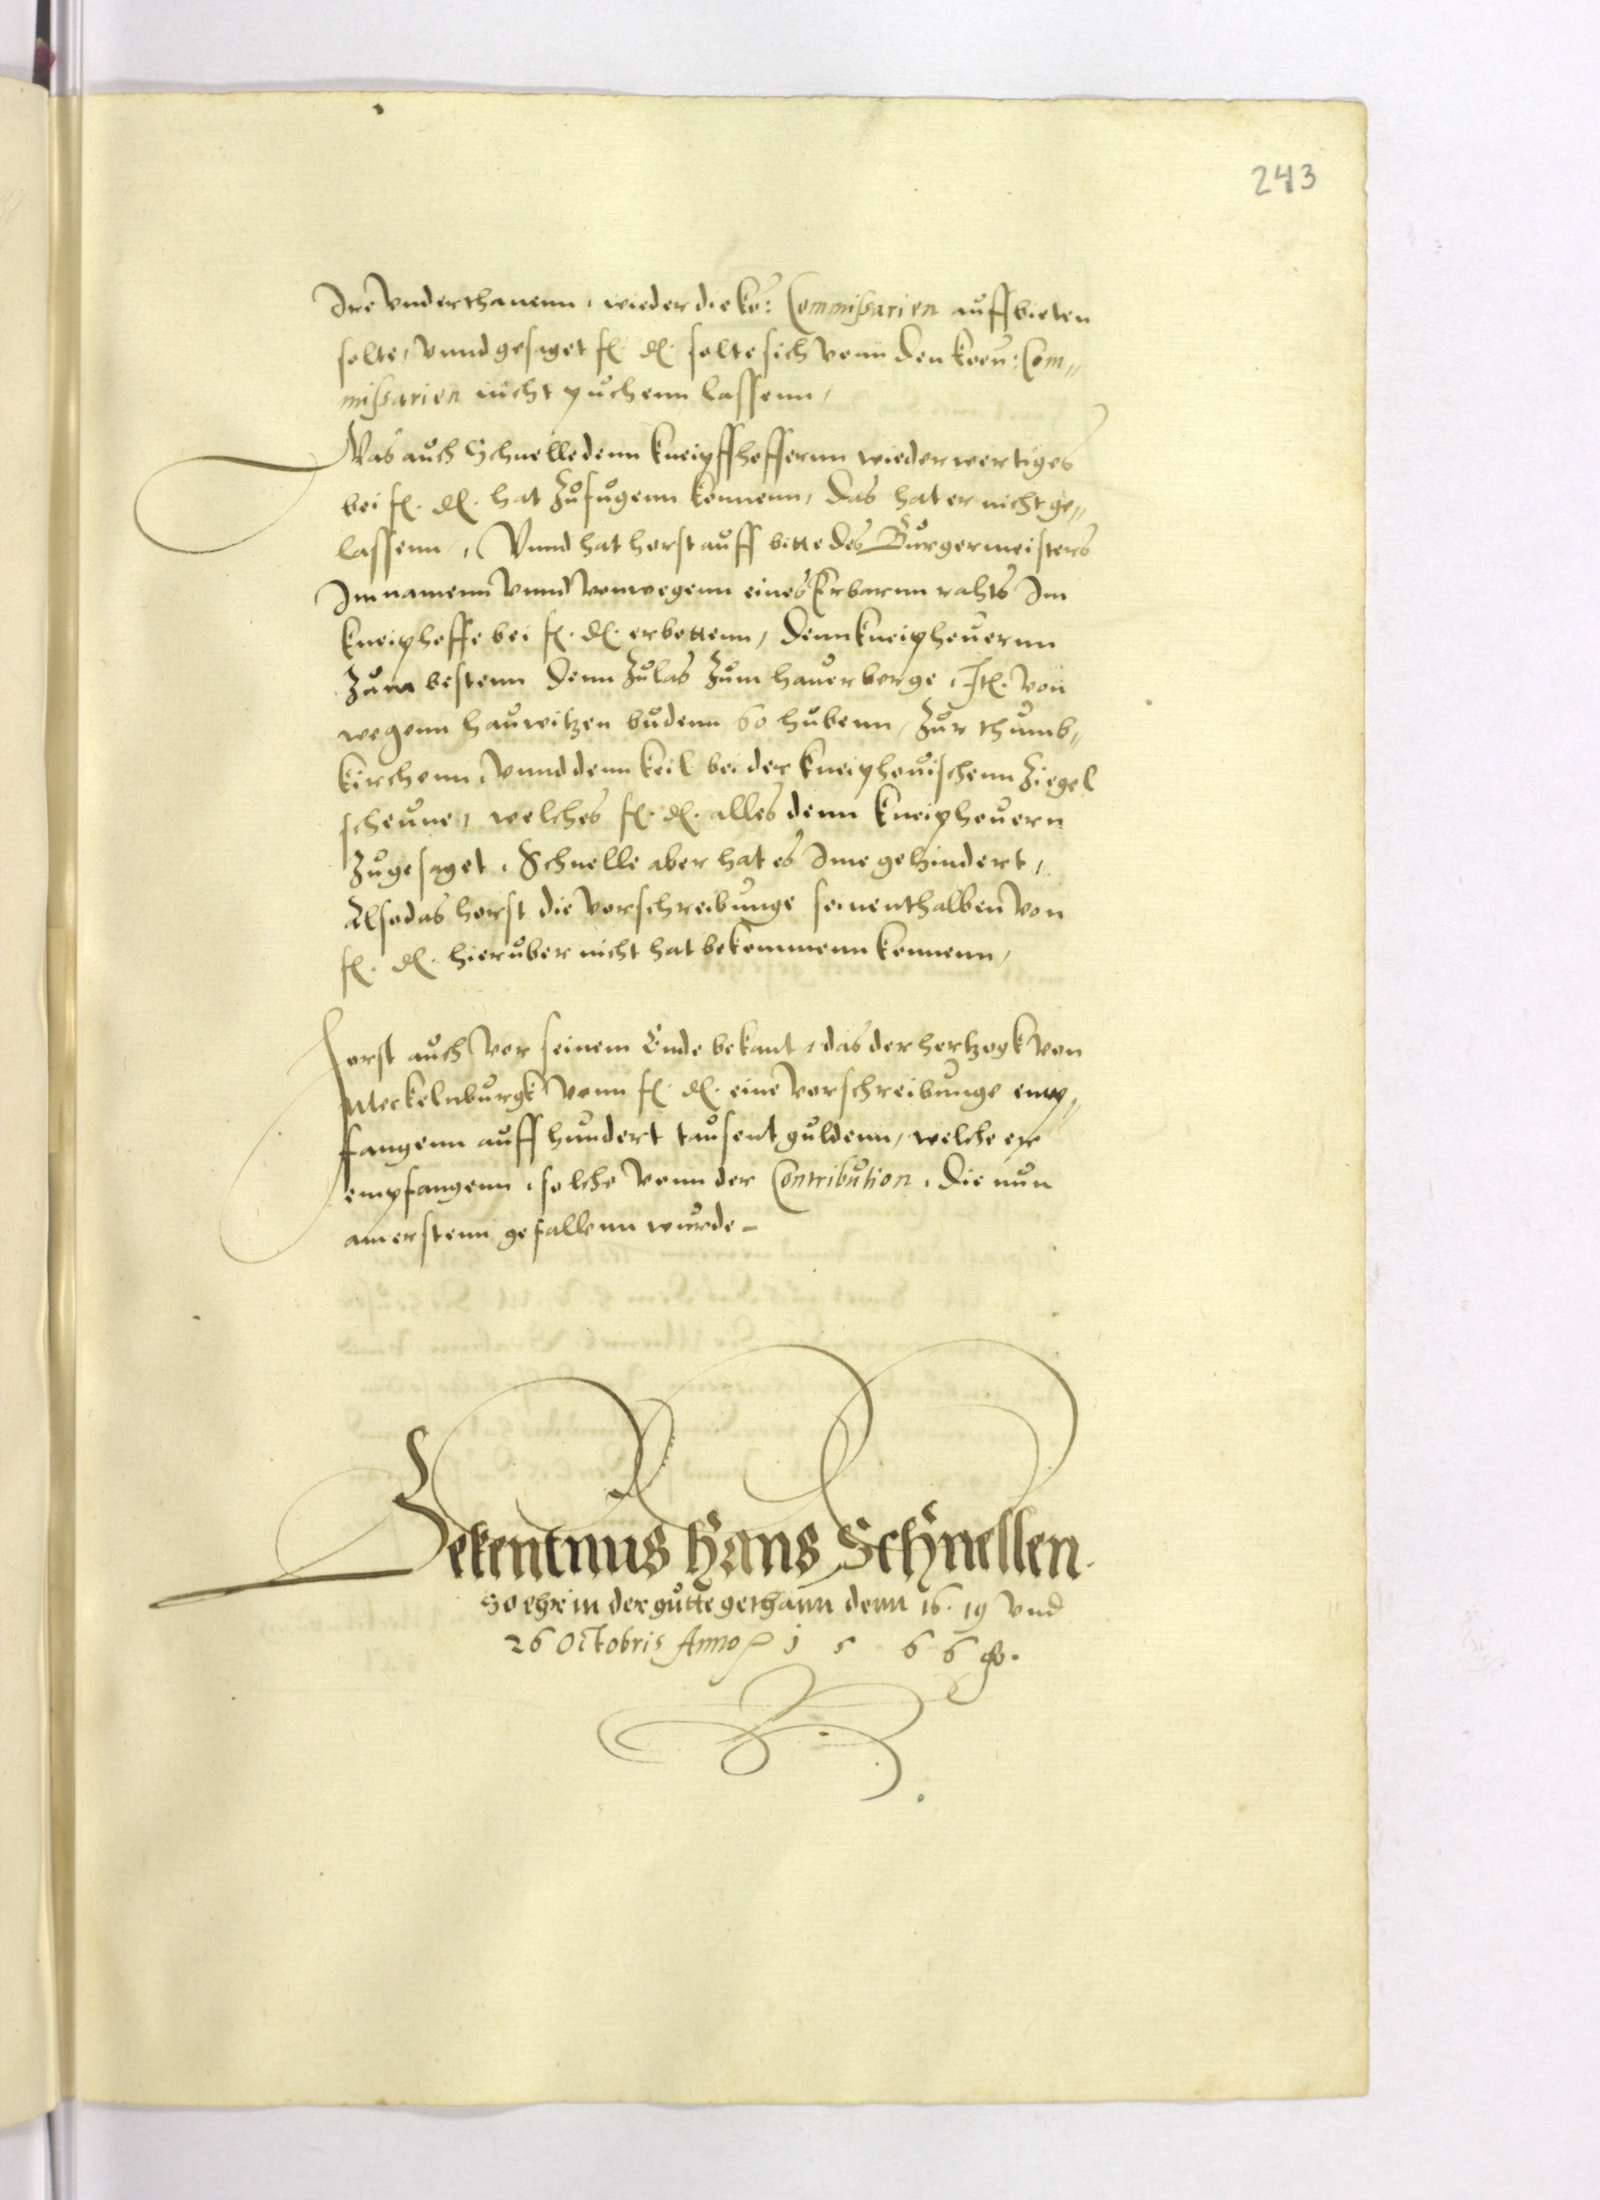 243
Ire Vnderthanenn, wieder die ko: Commissarien auffbieten
solte, vnnd gesaget f. d. solte sich vonn den koen: Com„
missarien nicht puchenn lassenn,
Was auch Schnelle denn kneipffhoffernn wiederwertiges
bei f. d. hat zufugenn konnenn, das hat er nicht ge„
lassenn, Vnnd hat horst auff bitte des Burgermeisters
Im namenn vnnd vonwegenn eines Erbarnn rahts Im
kneiphoffe bei f. d. erbettenn, denn kneiphouernn
zum bestenn denn zulas zum hauerberge, It. von
wegenn hauwitzen budenn 60 hubenn, zur thumb„
kirchenn, vnnd denn keil bei der kneiphouischenn Ziegel
scheune, welches f. d. alles denn kneiphouern
zugesaget, Schnelle aber hat es Ime gehindert,
Also das horst die vorschreibunge seinenthalben von
f. d. hieruber nicht hat bekommenn konnenn,
Horst auch vor seinem Ende bekant, das der hertzogk von
Meckelnburgk vonn f. d. eine vorschreibunge emp„
fangenn auff hundert tausent guldenn, welche er
empfangenn, solche vonn der Contribution, die nun
am erstenn gefallenn wurde
Bekentnus Hans Schnellen.
So ehr in der gutte gethann denn 16. 19 vnd
26 Octobris Anno 1 5 6 6